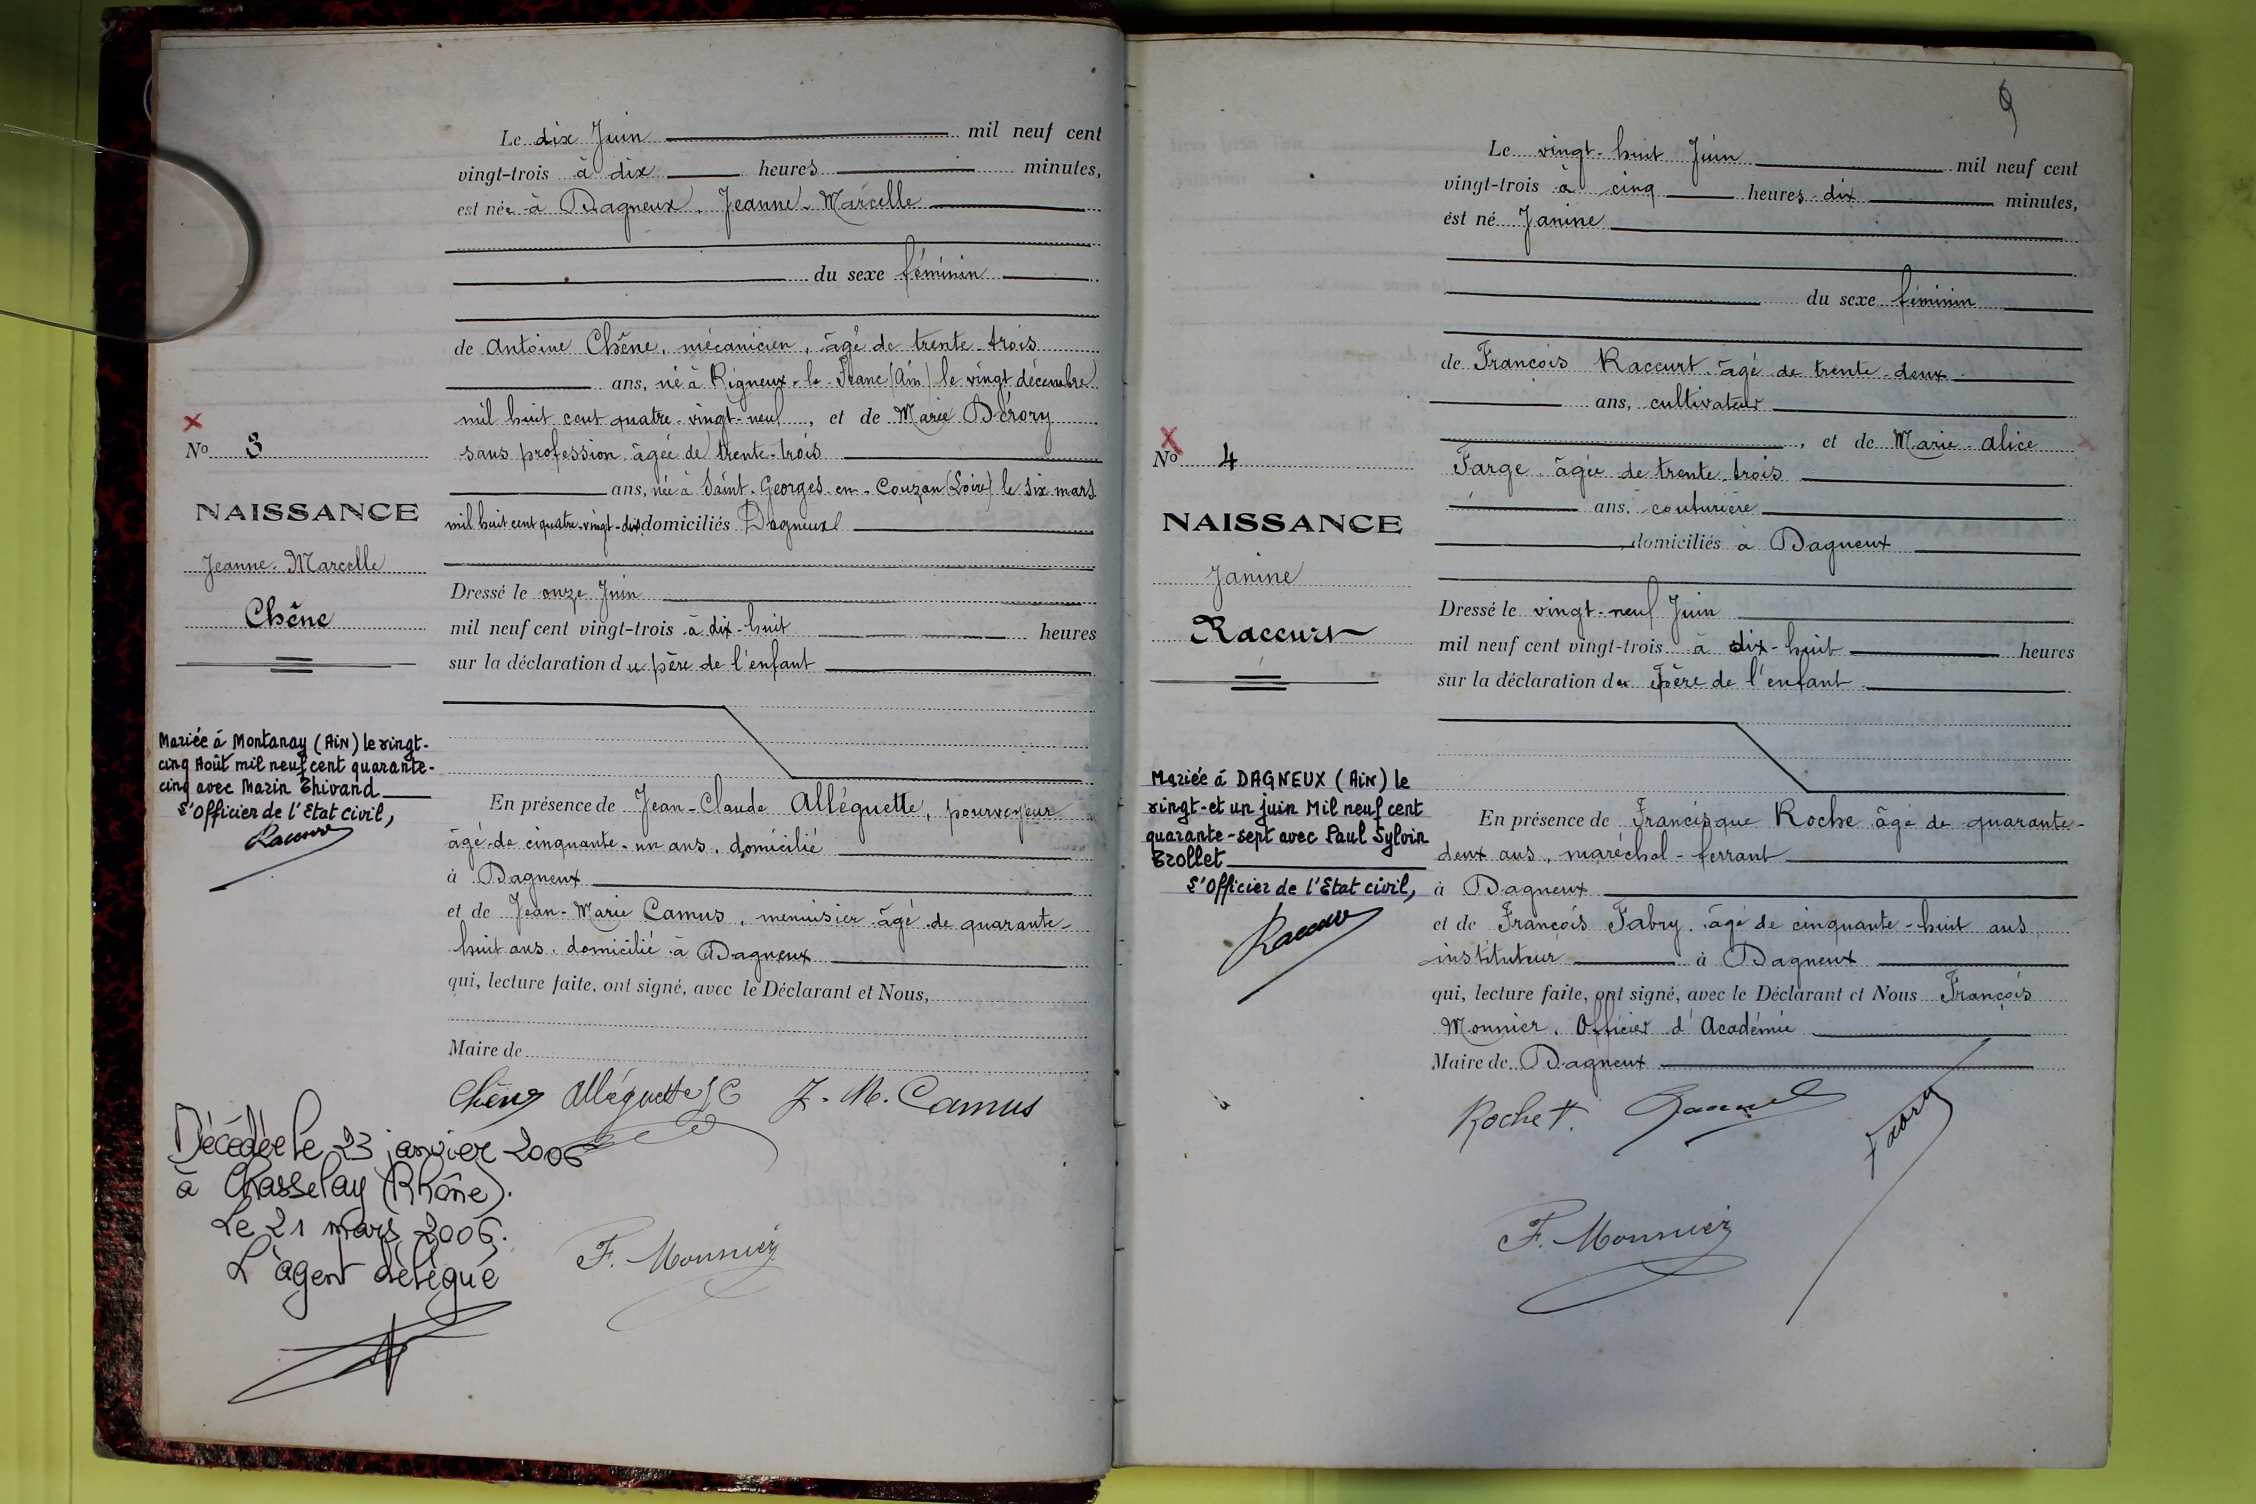 Le dix Juin mil neuf cent
vingt-trois à dix heures minutes,
est née à Dagneux, Jeanne-Marcelle
du sexe féminin
de Antoine Chêne, mécanicien, âgé de trente-trois
ans, né à Rigneux-le-Franc (Ain) le vingt décembre
mil huit cent quatre-vingt-neuf, et de Marie Dérory
sans profession âgée de trente-trois
ans, née à Saint-Georges-en-Couzan (Loire) le six mars
mil huit cent quatre-vingt-dix domiciliés Dagneux
Dressé le onze Juin
mil neuf cent vingt-trois à dix-huit heures
sur la déclaration du père de l'enfant
En présence de Jean-Claude Alléguette, pourvoyeur
âgé de cinquante-un ans, domicilié
à Dagneux
et de Jean-Marie Camus, menuisier âgé de quarante-
huit ans, domicilié à Dagneux
qui, lecture faite, ont signé, avec le Déclarant et Nous,
Maire de
Chêne Alléguette JC J-M. Camus
F. Monnier
No 3
NAISSANCE
Jeanne-Marcelle
Chêne
Mariée à Montanay (Ain) le vingt-
cinq Août mil neuf cent quarante-
cinq avec Marin Thivand
L'Officier de l'Etat civil,
Raccurt
Décédée le 23 janvier 2006
à Chasselay (Rhône).
Le 21 mars 2006.
L'agent délégué
9
Le vingt-huit Juin mil neuf cent
vingt-trois à cinq heures dix minutes,
est né Janine
du sexe féminin
de François Raccurt âgé de trente-deux
ans, cultivateur
, et de Marie-Alice
Farge âgée de trente-trois
ans, couturière
domiciliés à Dagneux
Dressé le vingt-neuf Juin
mil neuf cent vingt-trois à dix-huit heures
sur la déclaration du Père de l'enfant
En présence de Francisque Roche âgé de quarante-
deux ans, maréchal-ferrant
à Dagneux
et de François Fabry, âgé de cinquante-huit ans
instituteur à Dagneux
qui, lecture faite, ont signé, avec le Déclarant et Nous François
Monnier, Officier d'Académie
Maire de Dagneux
Roche F. Raccurt Fabry
F. Monnier
No 4
NAISSANCE
Janine
Raccurt
Mariée à DAGNEUX (Ain) le
vingt-et un juin Mil neuf cent
quarante-sept avec Paul Sylvin
Trollet
L'Officier de l'Etat civil,
Raccurt